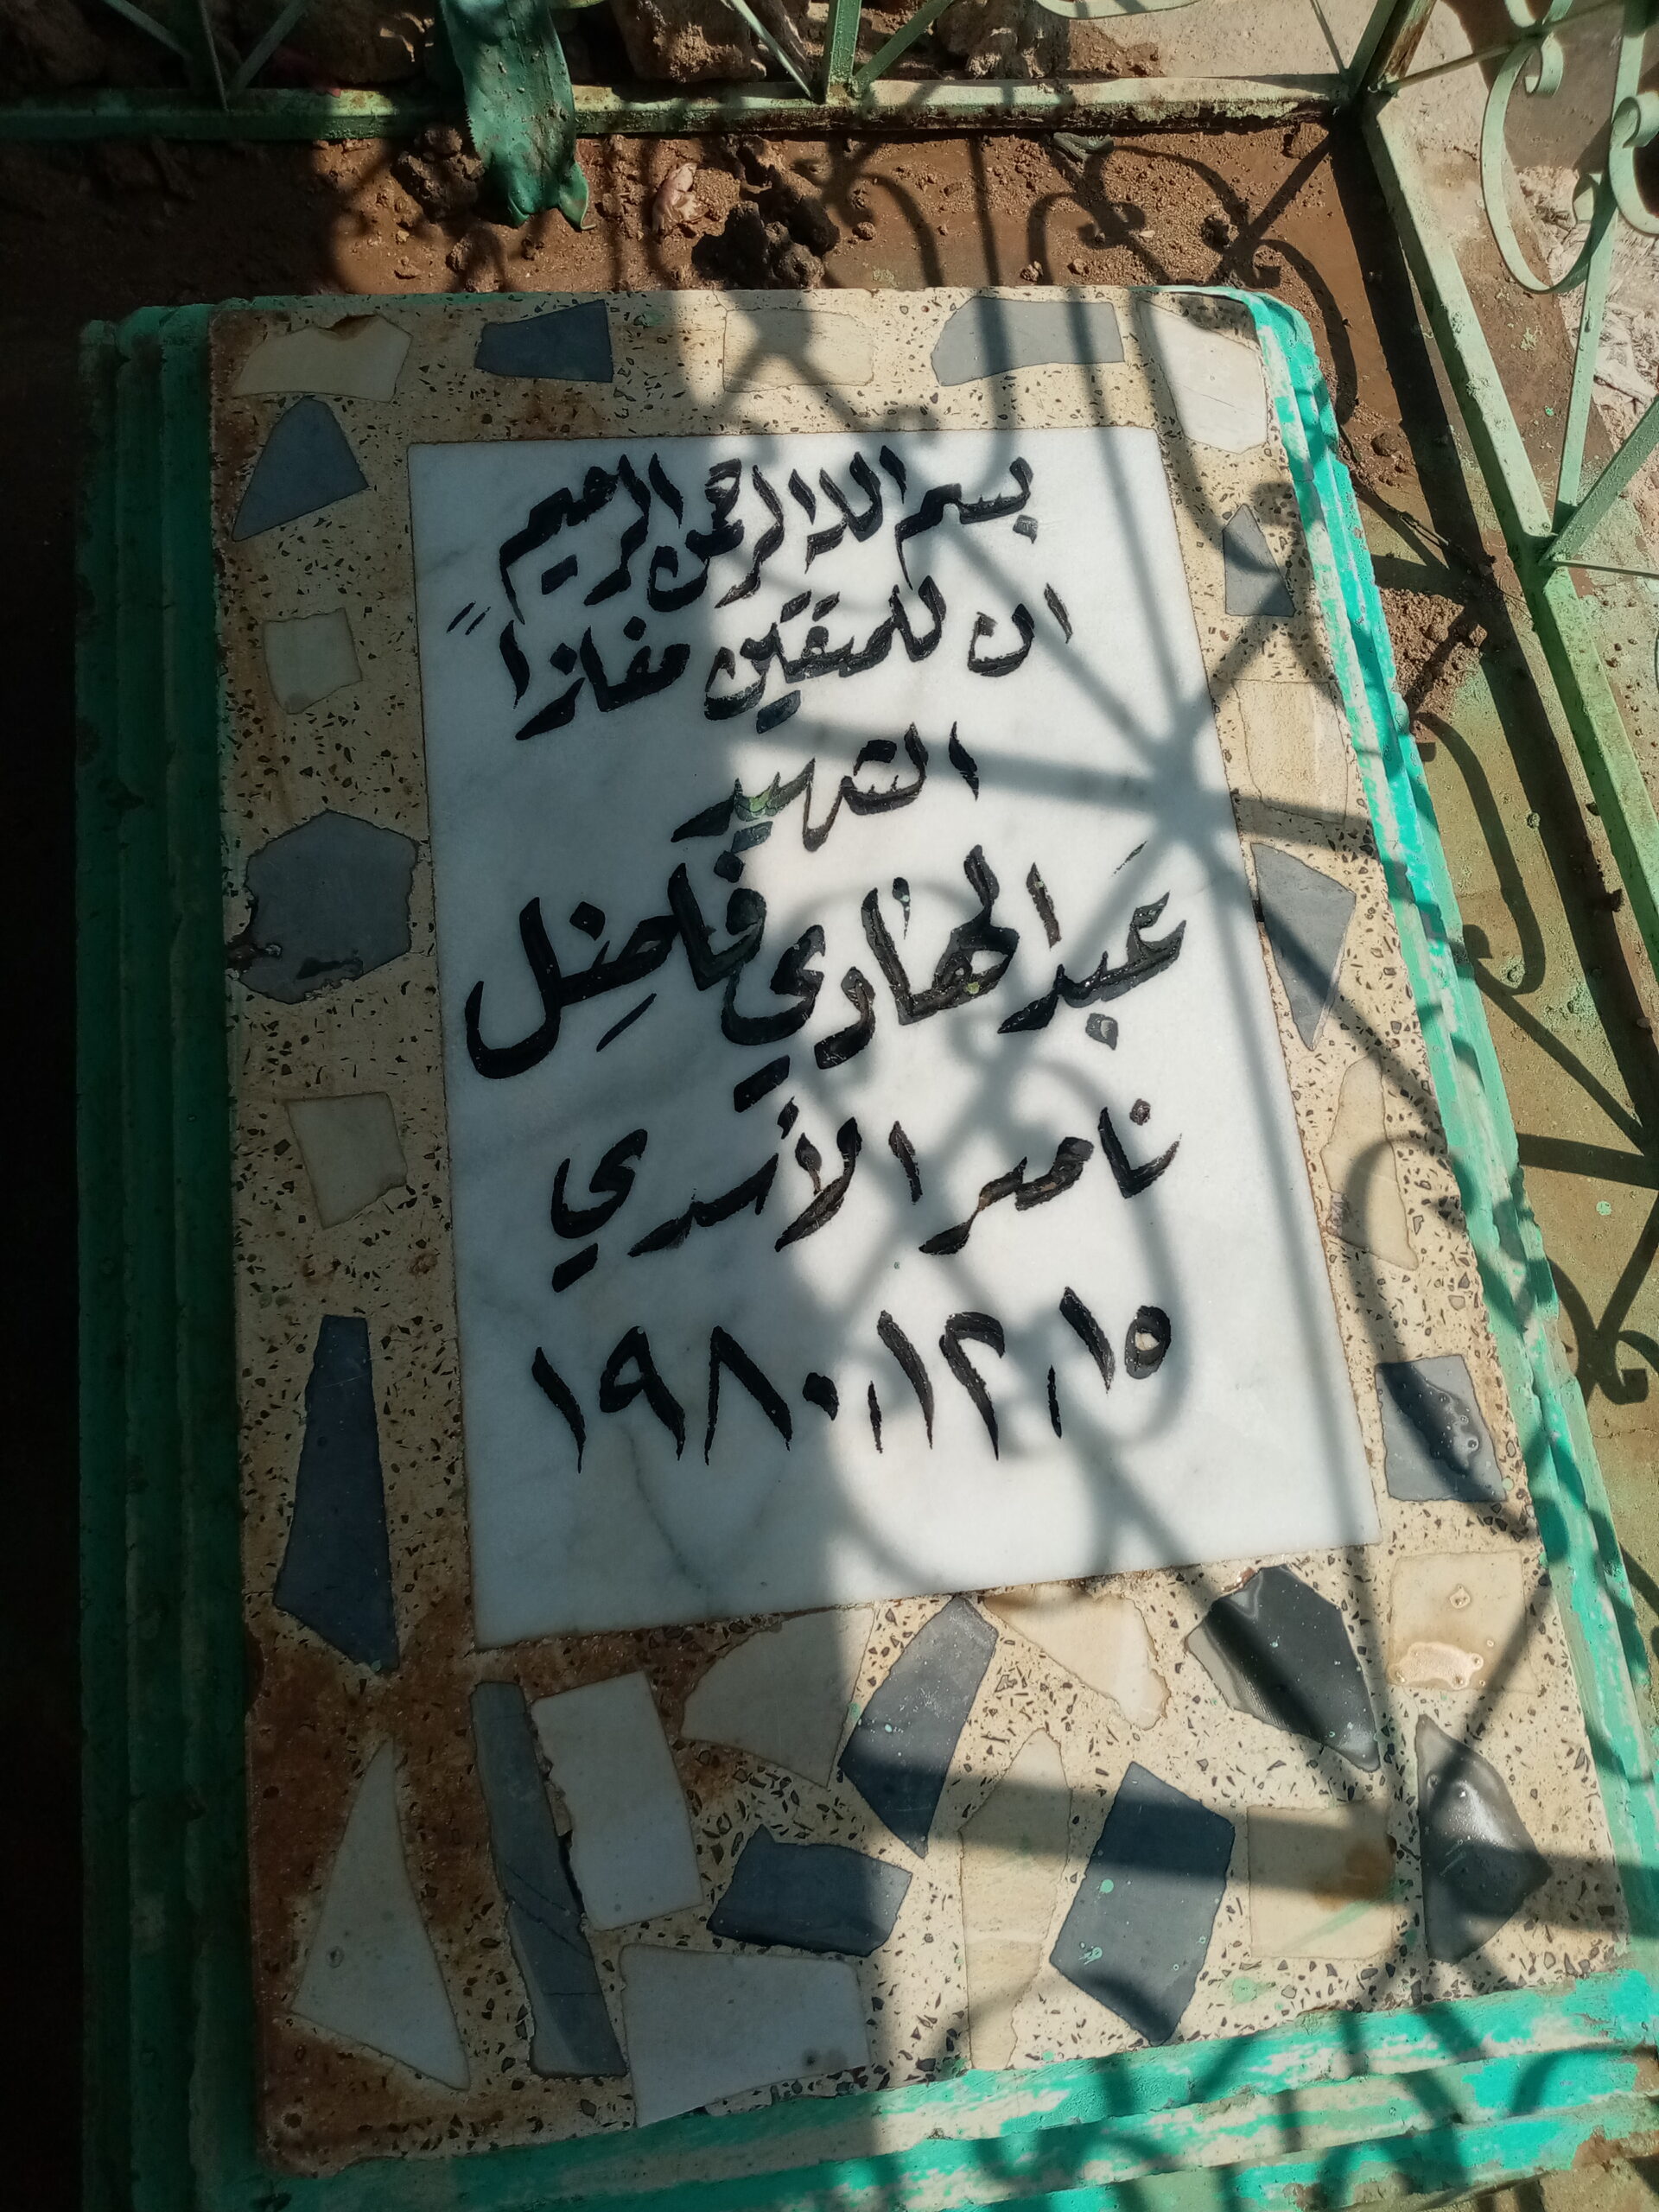 بسم الله الرحمن الرحيم
ان للمتقين مفازاً
الشهيد
عبد الهادي فاضل
ناصر الأسدي
١٥/١٢/١٩٨٠